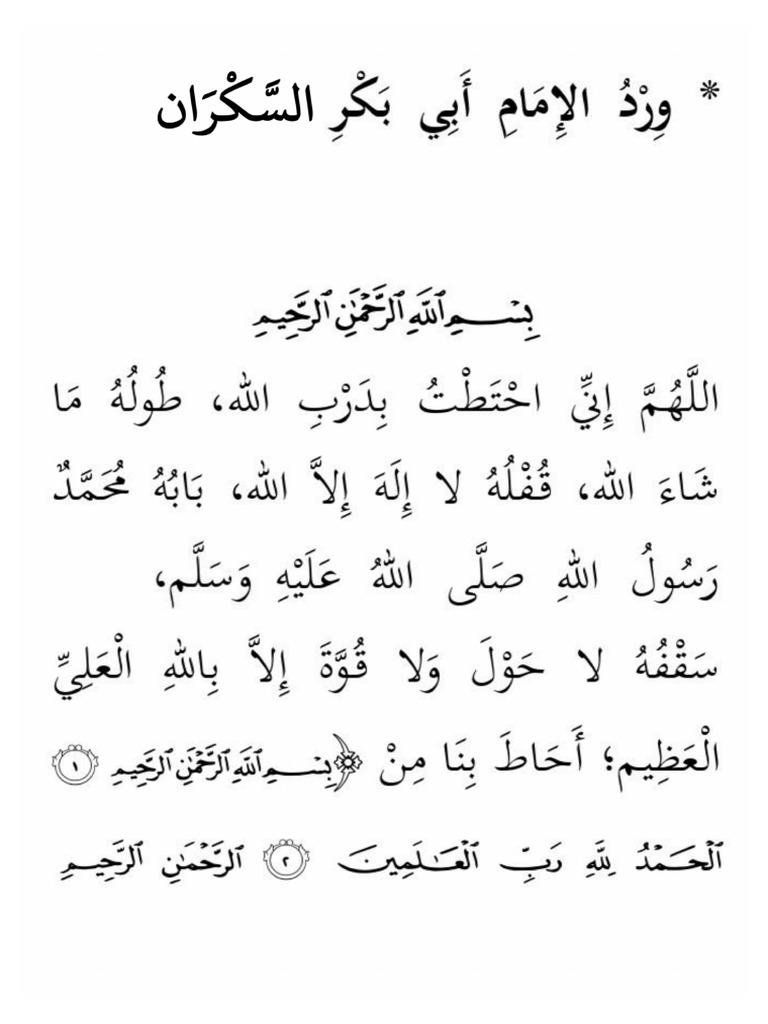 * وِرْدُ الإِمَامِ أَبِي بَكْرِ السَّكْرَان
بِسْمِ ٱللَّهِ ٱلرَّحْمَٰنِ ٱلرَّحِيمِ
اللَّهُمَّ إِنِّي احْتَطْتُ بِدَرْبِ الله، طُولُهُ مَا
شَاءَ الله، قُفْلُهُ لا إِلَهَ إِلاَّ الله، بَابُهُ مُحَمَّدٌ
رَسُولُ اللهِ صَلَّى اللهُ عَلَيْهِ وَسَلَّم،
سَقْفُهُ لا حَوْلَ وَلا قُوَّةَ إِلاَّ بِاللهِ الْعَلِيِّ
الْعَظِيم؛ أَحَاطَ بِنَا مِنْ ﴿بِسْمِ ٱللَّهِ ٱلرَّحْمَٰنِ ٱلرَّحِيمِ ١
ٱلْحَمْدُ لِلَّهِ رَبِّ ٱلْعَٰلَمِينَ ٢ ٱلرَّحْمَٰنِ ٱلرَّحِيمِ